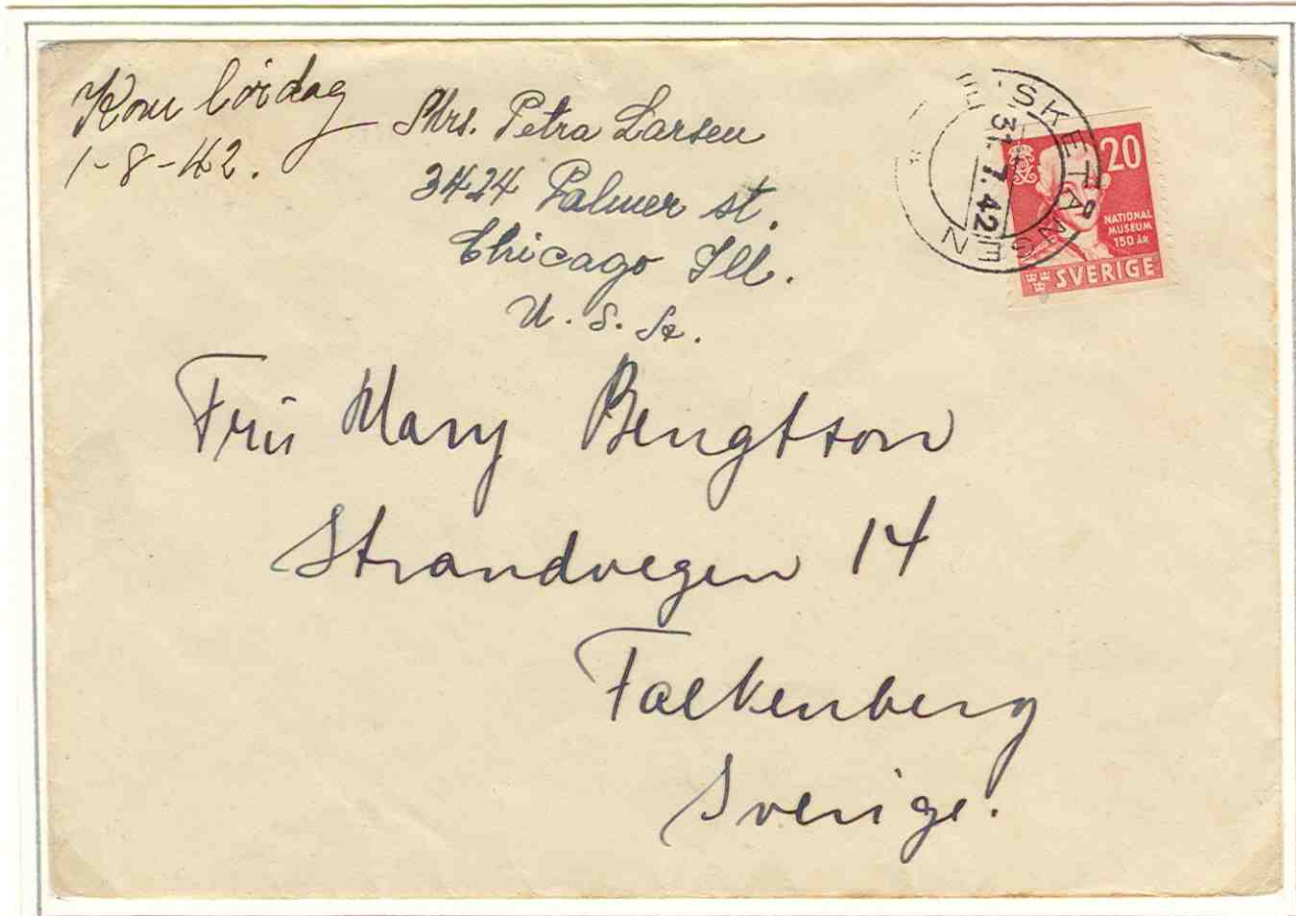 Kom lördag
1-8-42.
Mrs. Petra Larsen
3424 Palmer st.
Chicago Ill.
U. S. A.
SKETÅNGEN
31.7.42
20
NATIONAL
MUSEUM
150 ÅR
SVERIGE
Fru Mary Bengtson
Strandvegen 14
Falkenberg
Sverige.